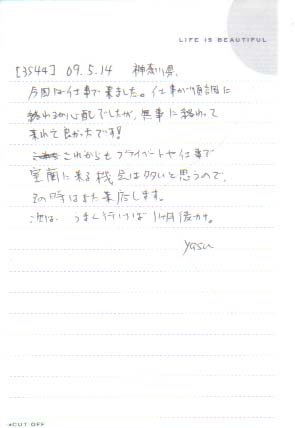 LIFE IS BEAUTIFUL
[3544] 09.5.14 神奈川県
今回は仕事で来ました。仕事が順調に
終わるか心配でしたが、無事に終わって
来れて良かったです!
これからもプライベートや仕事で
室蘭に来る機会は多いと思うので、
その時はまた来店します。
次は、うまく行けば1ヶ月後か。
yasu
CUT OFF